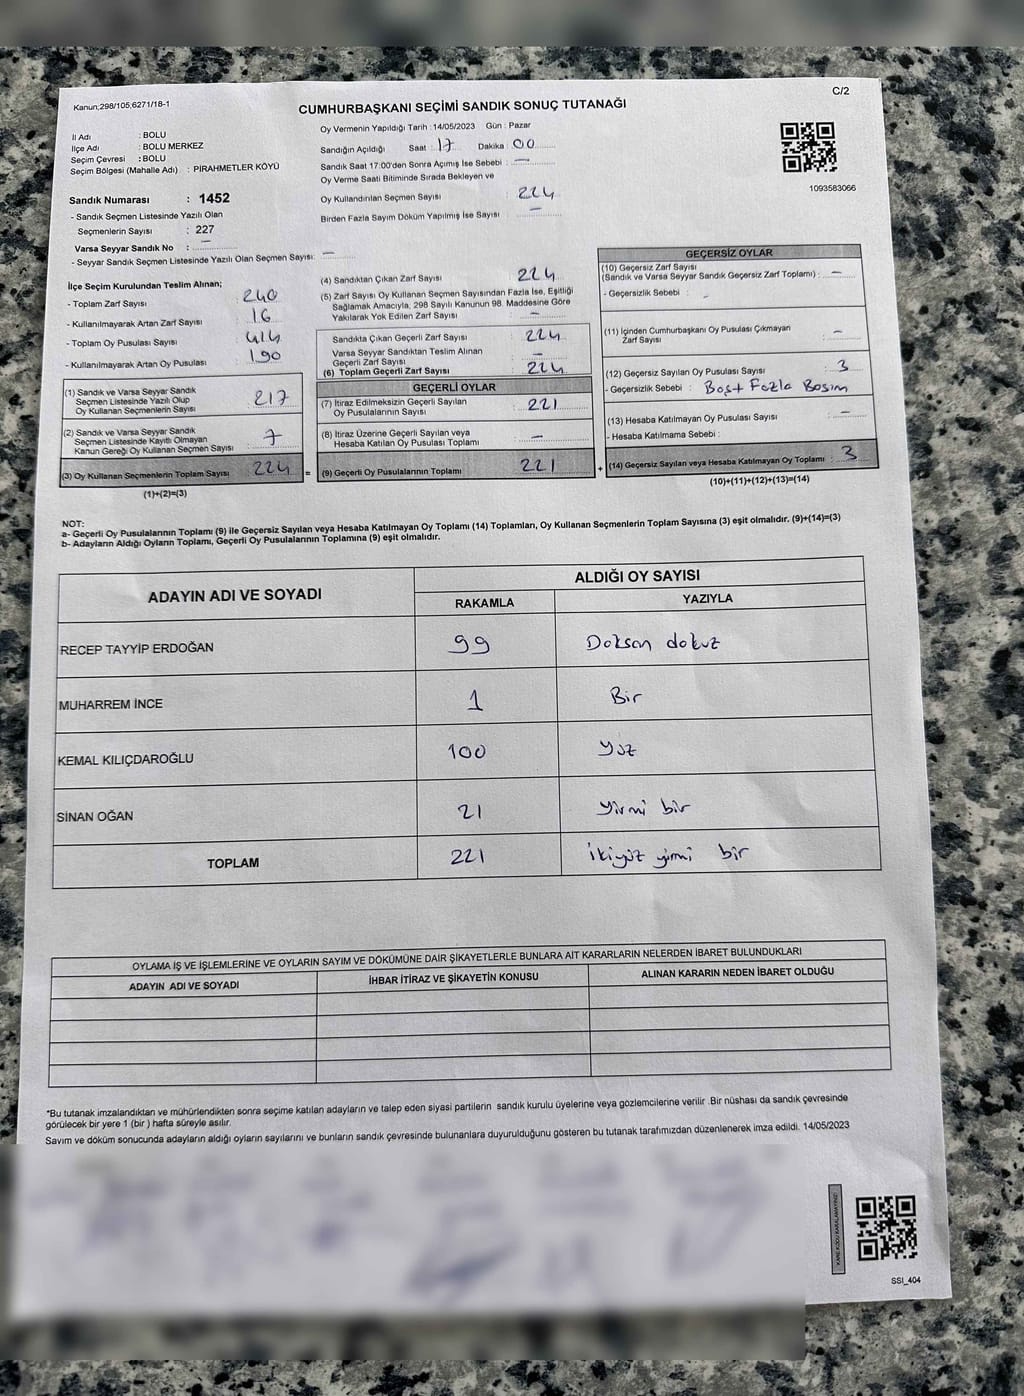 Kanun;298/105;6271/18-1
C/2
CUMHURBAŞKANI SEÇİMİ SANDIK SONUÇ TUTANAĞI
İl Adı : BOLU
İlçe Adı : BOLU MERKEZ
Seçim Çevresi : BOLU
Seçim Bölgesi (Mahalle Adı) : PİRAHMETLER KÖYÜ
Sandık Numarası : 1452
- Sandık Seçmen Listesinde Yazılı Olan
Seçmenlerin Sayısı : 227
Varsa Seyyar Sandık No : –
- Seyyar Sandık Seçmen Listesinde Yazılı Olan Seçmen Sayısı: –
Oy Vermenin Yapıldığı Tarih : 14/05/2023 Gün : Pazar
Sandığın Açıldığı Saat : 17 Dakika : 00
Sandık Saat 17:00'den Sonra Açımış İse Sebebi : –
Oy Verme Saati Bitiminde Sırada Bekleyen ve
Oy Kullandırılan Seçmen Sayısı : 224
Birden Fazla Sayım Döküm Yapılmış İse Sayısı : –
1093583066
İlçe Seçim Kurulundan Teslim Alınan;
- Toplam Zarf Sayısı : 240
- Kullanılmayarak Artan Zarf Sayısı : 16
- Toplam Oy Pusulası Sayısı : 414
- Kullanılmayarak Artan Oy Pusulası : 190
(1) Sandık ve Varsa Seyyar Sandık
Seçmen Listesinde Yazılı Olup
Oy Kullanan Seçmenlerin Sayısı : 217
(2) Sandık ve Varsa Seyyar Sandık
Seçmen Listesinde Kayıtlı Olmayan
Kanun Gereği Oy Kullanan Seçmen Sayısı : 7
(3) Oy Kullanan Seçmenlerin Toplam Sayısı : 224
(1)+(2)=(3)
(4) Sandıktan Çıkan Zarf Sayısı : 224
(5) Zarf Sayısı Oy Kullanan Seçmen Sayısından Fazla İse, Eşitliği
Sağlamak Amacıyla, 298 Sayılı Kanunun 98. Maddesine Göre
Yakılarak Yok Edilen Zarf Sayısı : –
Sandıkta Çıkan Geçerli Zarf Sayısı : 224
Varsa Seyyar Sandıktan Teslim Alınan
Geçerli Zarf Sayısı : –
(6) Toplam Geçerli Zarf Sayısı : 224
GEÇERLİ OYLAR
(7) İtiraz Edilmeksizin Geçerli Sayılan
Oy Pusulalarının Sayısı : 221
(8) İtiraz Üzerine Geçerli Sayılan veya
Hesaba Katılan Oy Pusulası Toplamı : –
= (9) Geçerli Oy Pusulalarının Toplamı : 221
GEÇERSİZ OYLAR
(10) Geçersiz Zarf Sayısı
(Sandık ve Varsa Seyyar Sandık Geçersiz Zarf Toplamı) : –
- Geçersizlik Sebebi : –
(11) İçinden Cumhurbaşkanı Oy Pusulası Çıkmayan
Zarf Sayısı : –
(12) Geçersiz Sayılan Oy Pusulası Sayısı : 3
- Geçersizlik Sebebi : Boş+ Fazla Basım
(13) Hesaba Katılmayan Oy Pusulası Sayısı : –
- Hesaba Katılmama Sebebi :
+ (14) Geçersiz Sayılan veya Hesaba Katılmayan Oy Toplamı : 3
(10)+(11)+(12)+(13)=(14)
NOT:
a- Geçerli Oy Pusulalarının Toplamı (9) ile Geçersiz Sayılan veya Hesaba Katılmayan Oy Toplamı (14) Toplamları, Oy Kullanan Seçmenlerin Toplam Sayısına (3) eşit olmalıdır. (9)+(14)=(3)
b- Adayların Aldığı Oyların Toplamı, Geçerli Oy Pusulalarının Toplamına (9) eşit olmalıdır.
ADAYIN ADI VE SOYADI ALDIĞI OY SAYISI
RAKAMLA YAZIYLA
RECEP TAYYİP ERDOĞAN 99 Doksan dokuz
MUHARREM İNCE 1 Bir
KEMAL KILIÇDAROĞLU 100 Yüz
SİNAN OĞAN 21 Yirmi bir
TOPLAM 221 İkiyüz yirmi bir
OYLAMA İŞ VE İŞLEMLERİNE VE OYLARIN SAYIM VE DÖKÜMÜNE DAİR ŞİKAYETLERLE BUNLARA AİT KARARLARIN NELERDEN İBARET BULUNDUKLARI
ADAYIN ADI VE SOYADI İHBAR İTİRAZ VE ŞİKAYETİN KONUSU ALINAN KARARIN NEDEN İBARET OLDUĞU
*Bu tutanak imzalandıktan ve mühürlendikten sonra seçime katılan adayların ve talep eden siyasi partilerin sandık kurulu üyelerine veya gözlemcilerine verilir .Bir nüshası da sandık çevresinde
görülecek bir yere 1 (bir ) hafta süreyle asılır.
Sayım ve döküm sonucunda adayların aldığı oyların sayılarını ve bunların sandık çevresinde bulunanlara duyurulduğunu gösteren bu tutanak tarafımızdan düzenlenerek imza edildi. 14/05/2023
KARE KODU KARALAMAYINIZ!
SSI_404